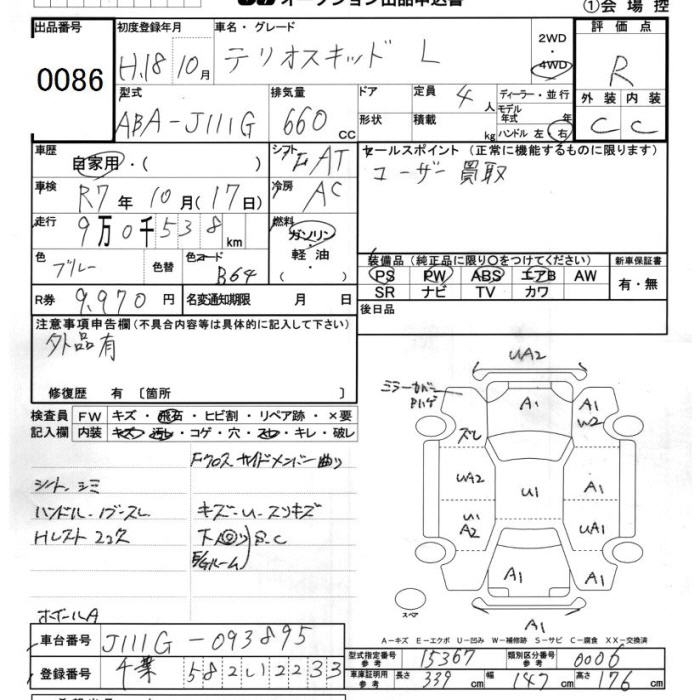 オークション出品申込書
①会場控
出品番号
0086
初度登録年月
H.18 10月
車名・グレード
テリオスキッド L
2WD
4WD
評価点
R
型式
ABA-J111G
排気量
660 cc
ドア
定員
4人
形状
積載
kg
ディーラー・並行
モデル年式 年
ハンドル 左 右
外装 内装
C C
車歴
自家用・( )
シフト
F AT
セールスポイント (正常に機能するものに限ります)
ユーザー買取
車検
R7年 10月(17日)
冷房
AC
走行
9万0千538km
燃料
ガソリン
軽油
・
( )
色
ブルー
色替
色コード
B64
装備品 (純正品に限り○をつけてください)
PS PW ABS エアB AW
SR ナビ TV カワ
新車保証書
有・無
R券
9,970円
名変通知期限 月 日
後日品
注意事項申告欄 (不具合内容等は具体的に記入して下さい)
外品有
修復歴 有 〔箇所 〕
検査員
記入欄
FW キズ・飛石・ヒビ割・リペア跡・×要
内装 キズ・汚レ・コゲ・穴・スレ・キレ・破レ
Fクロス サイドメンバー曲り
シート、シミ
ハンドル・ノブ・スレ
Hレスト 2ヶ欠
キズ・U・スリキズ
下廻り S.C
E/gルーム
ホイールA
UA2
ミラーカバー
Pハゲ
A1
A1
W2
ズレ
UA2
A1
U1
U1
A2
UA1
A1
A1
A1
スペア
A-キズ E-エクボ U-凹み W-補修跡 S-サビ C-腐食 XX-交換済
車台番号
J111G-093895
登録番号
千葉 582い2233
型式指定番号
参考
15367
類別区分番号
参考
0006
車庫証明用
参考
長さ
339 cm
幅
147 cm
高さ
176 cm